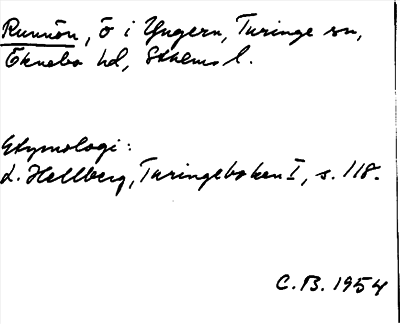 Runnön, ö i Yngern, Turinge sn,
Öknebo hd, Sthlms l.
Etymologi:
L. Hellberg, Turingeboken I, s. 118.
C. B. 1954